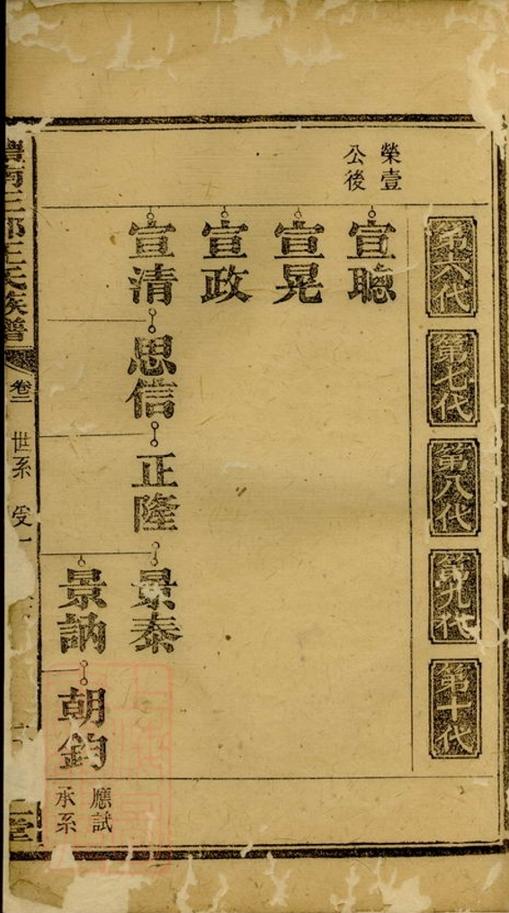 第六代
第七代
第八代
第九代
第十代
榮壹
公後
宣聰
宣晃
宣政
宣清
思信
正隆
景泰
景訥
朝鈞
應試
承系
南三郎王氏族譜
卷二
世系